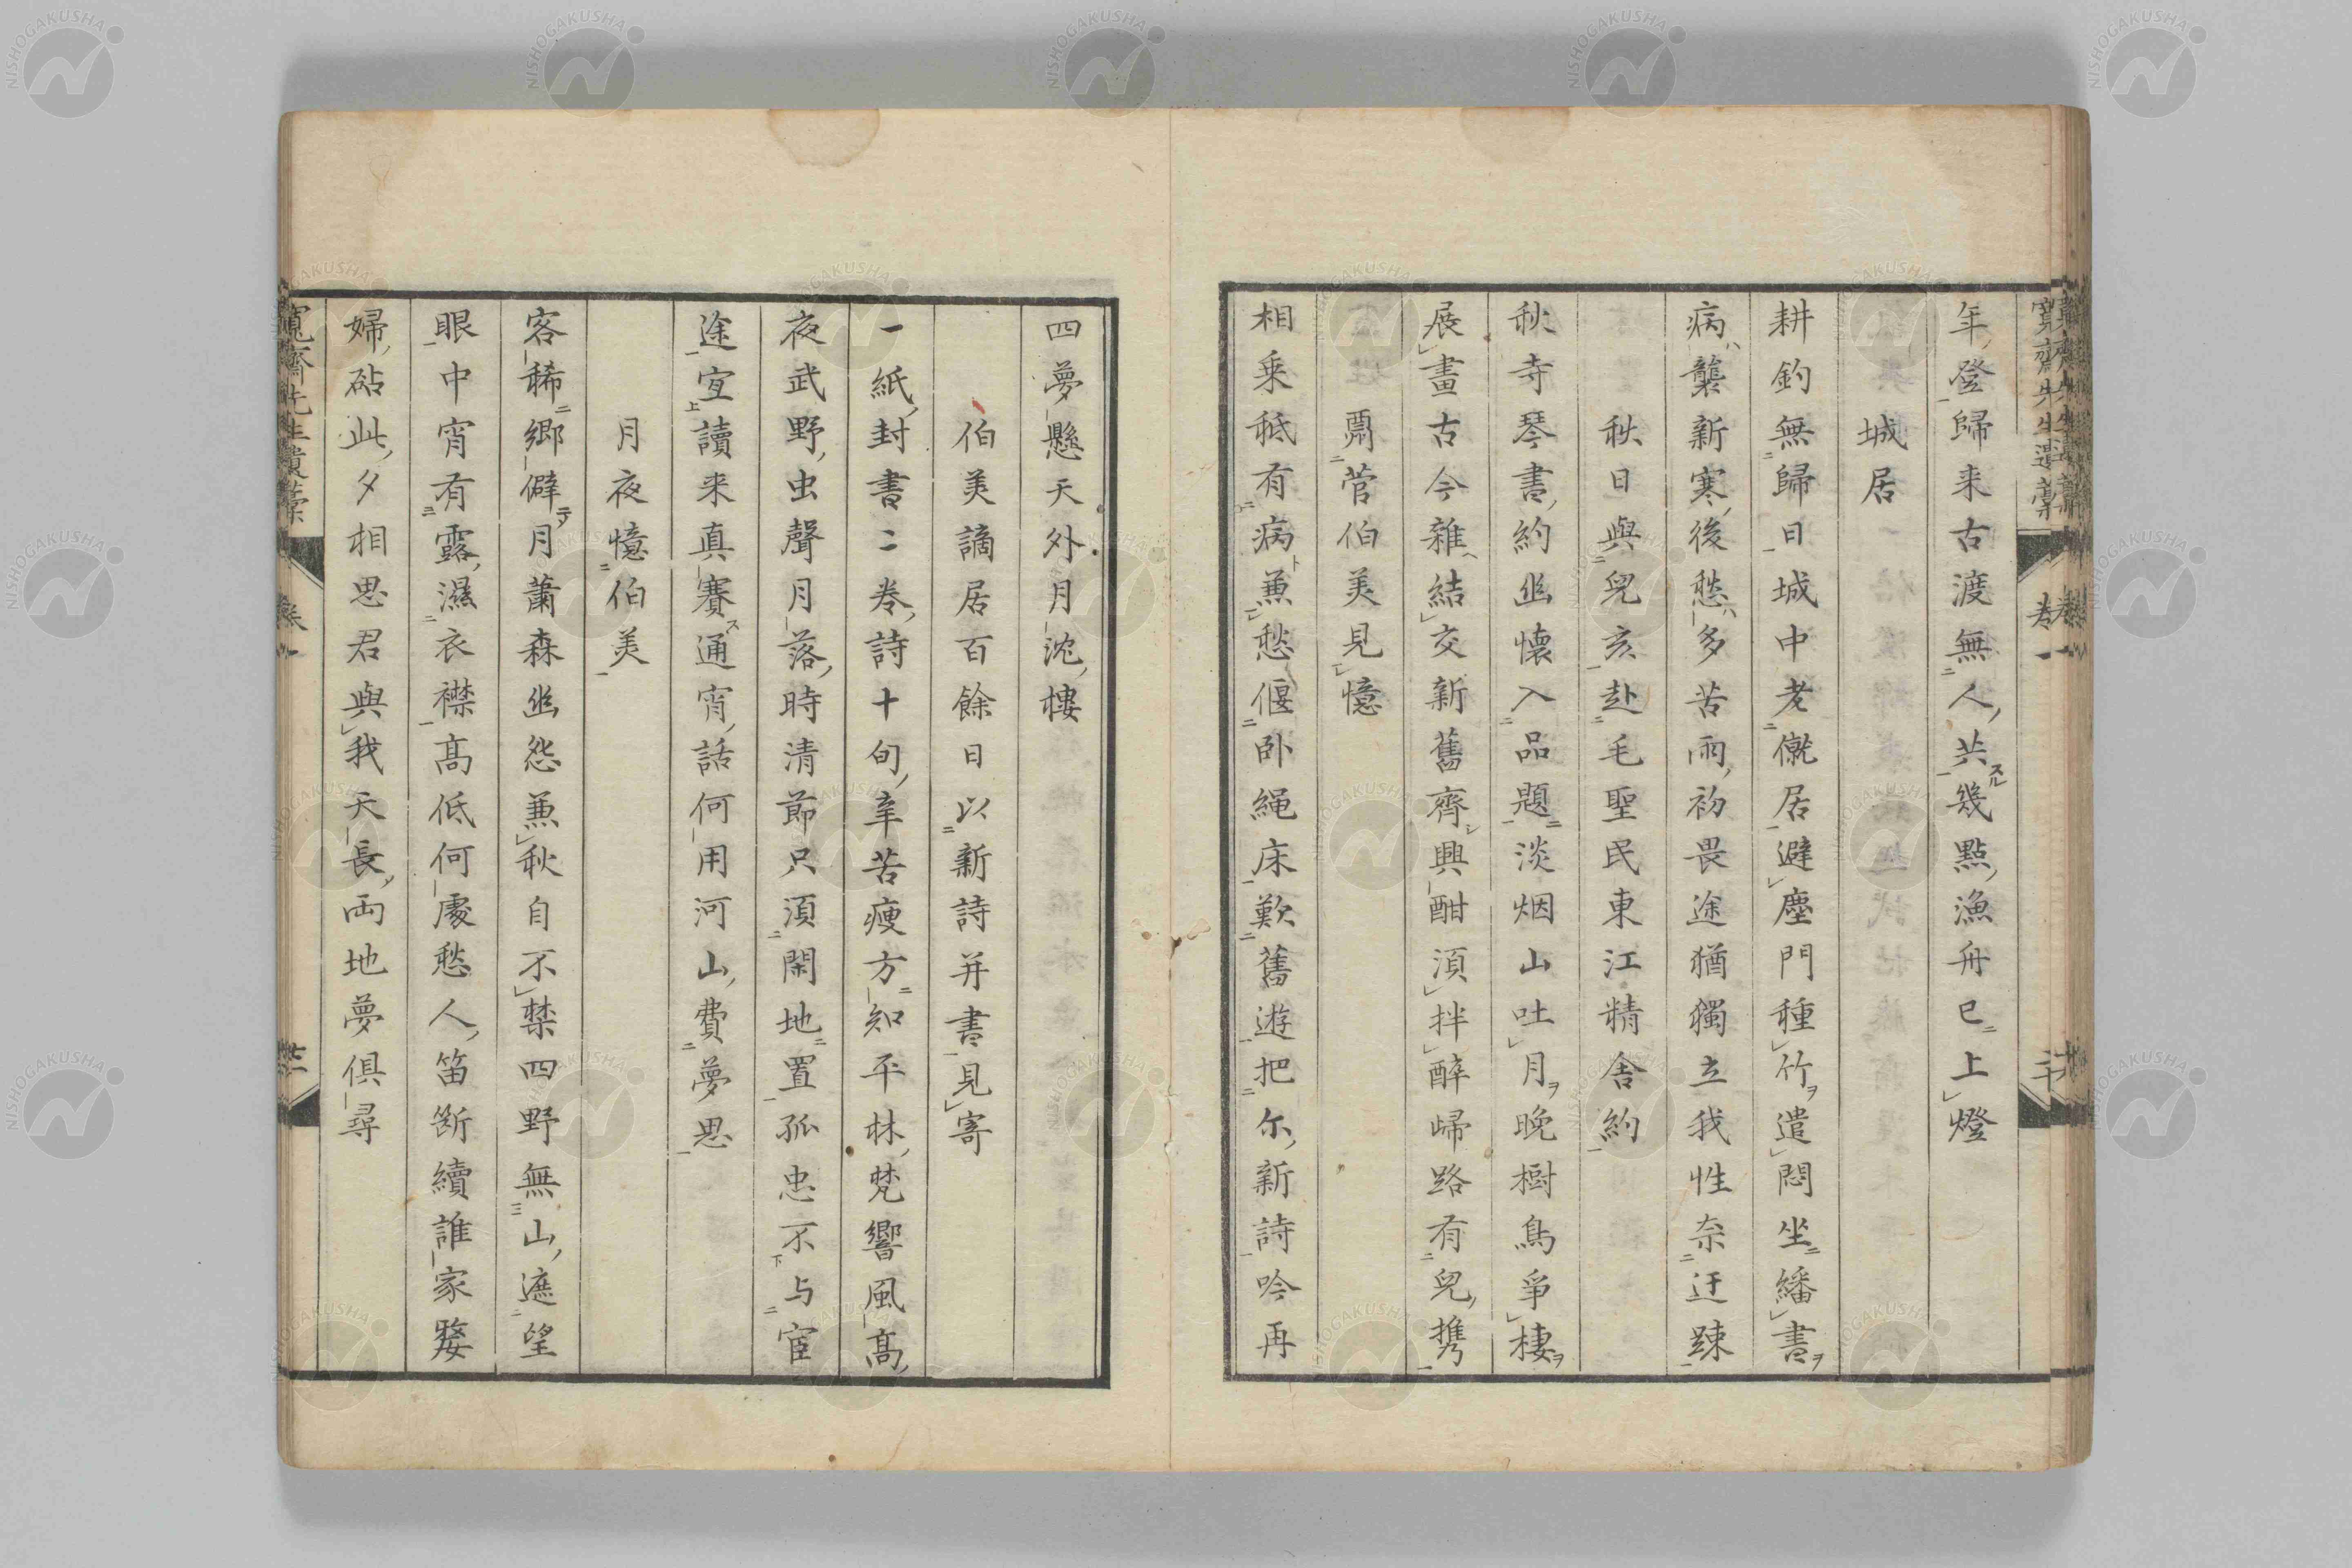 年登歸来古渡無人共幾點漁舟已上燈
城居
耕釣無歸日城中老僦居避塵門種竹遣悶坐繙書
病襲新寒後愁多苦雨初畏途猶獨立我性奈迂踈
秋日與兒亥赴毛聖民東江精舍約
秋寺琴書約幽懷入品題淡烟山吐月晚樹鳥爭棲
展畫古今雜結交新舊齊興酣須拌醉歸路有兒携
鬻菅伯美見憶
相乗秪有病兼愁偃卧繩床歎舊遊把尓新詩吟再
四夢懸天外月沈樓
伯美謫居百餘日以新詩并書見寄
一紙封書二巻詩十旬辛苦痩方知平林梵響風高
夜武野虫聲月落時清節只須閑地置孤忠不与宦
途宜讀来真賽通宵話何用河山費夢思
月夜憶伯美
客稀郷僻月蕭森幽怨兼秋自不禁四野無山遮望
眼中宵有露濕衣襟高低何處愁人笛斷續誰家嫠
婦砧此夕相思君與我天長両地夢倶尋
寛齋先生遺稾
巻一
NISHOGAKUSHA